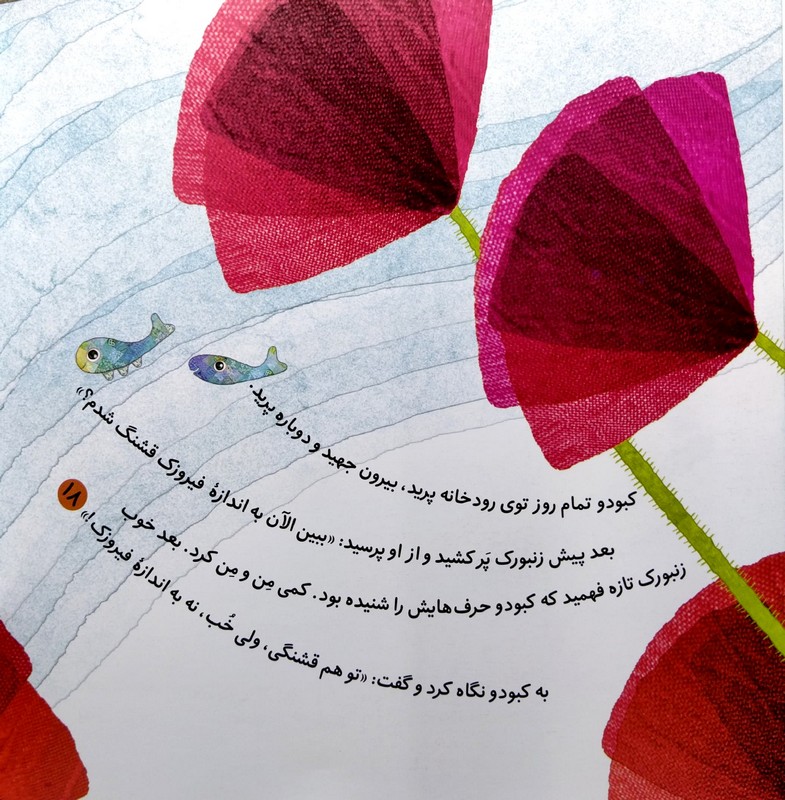 کبودو تمام روز توی رودخانه پرید، بیرون جهید و دوباره پرید.
بعد پیش زنبورک پَر کشید و از او پرسید: «ببین الآن به اندازهٔ فیروزک قشنگ شدم؟»
زنبورک تازه فهمید که کبودو حرف‌هایش را شنیده بود. کمی مِن و مِن کرد. بعد خوب
به کبودو نگاه کرد و گفت: «تو هم قشنگی، ولی خُب، نه به اندازهٔ فیروزک!»
۱۸